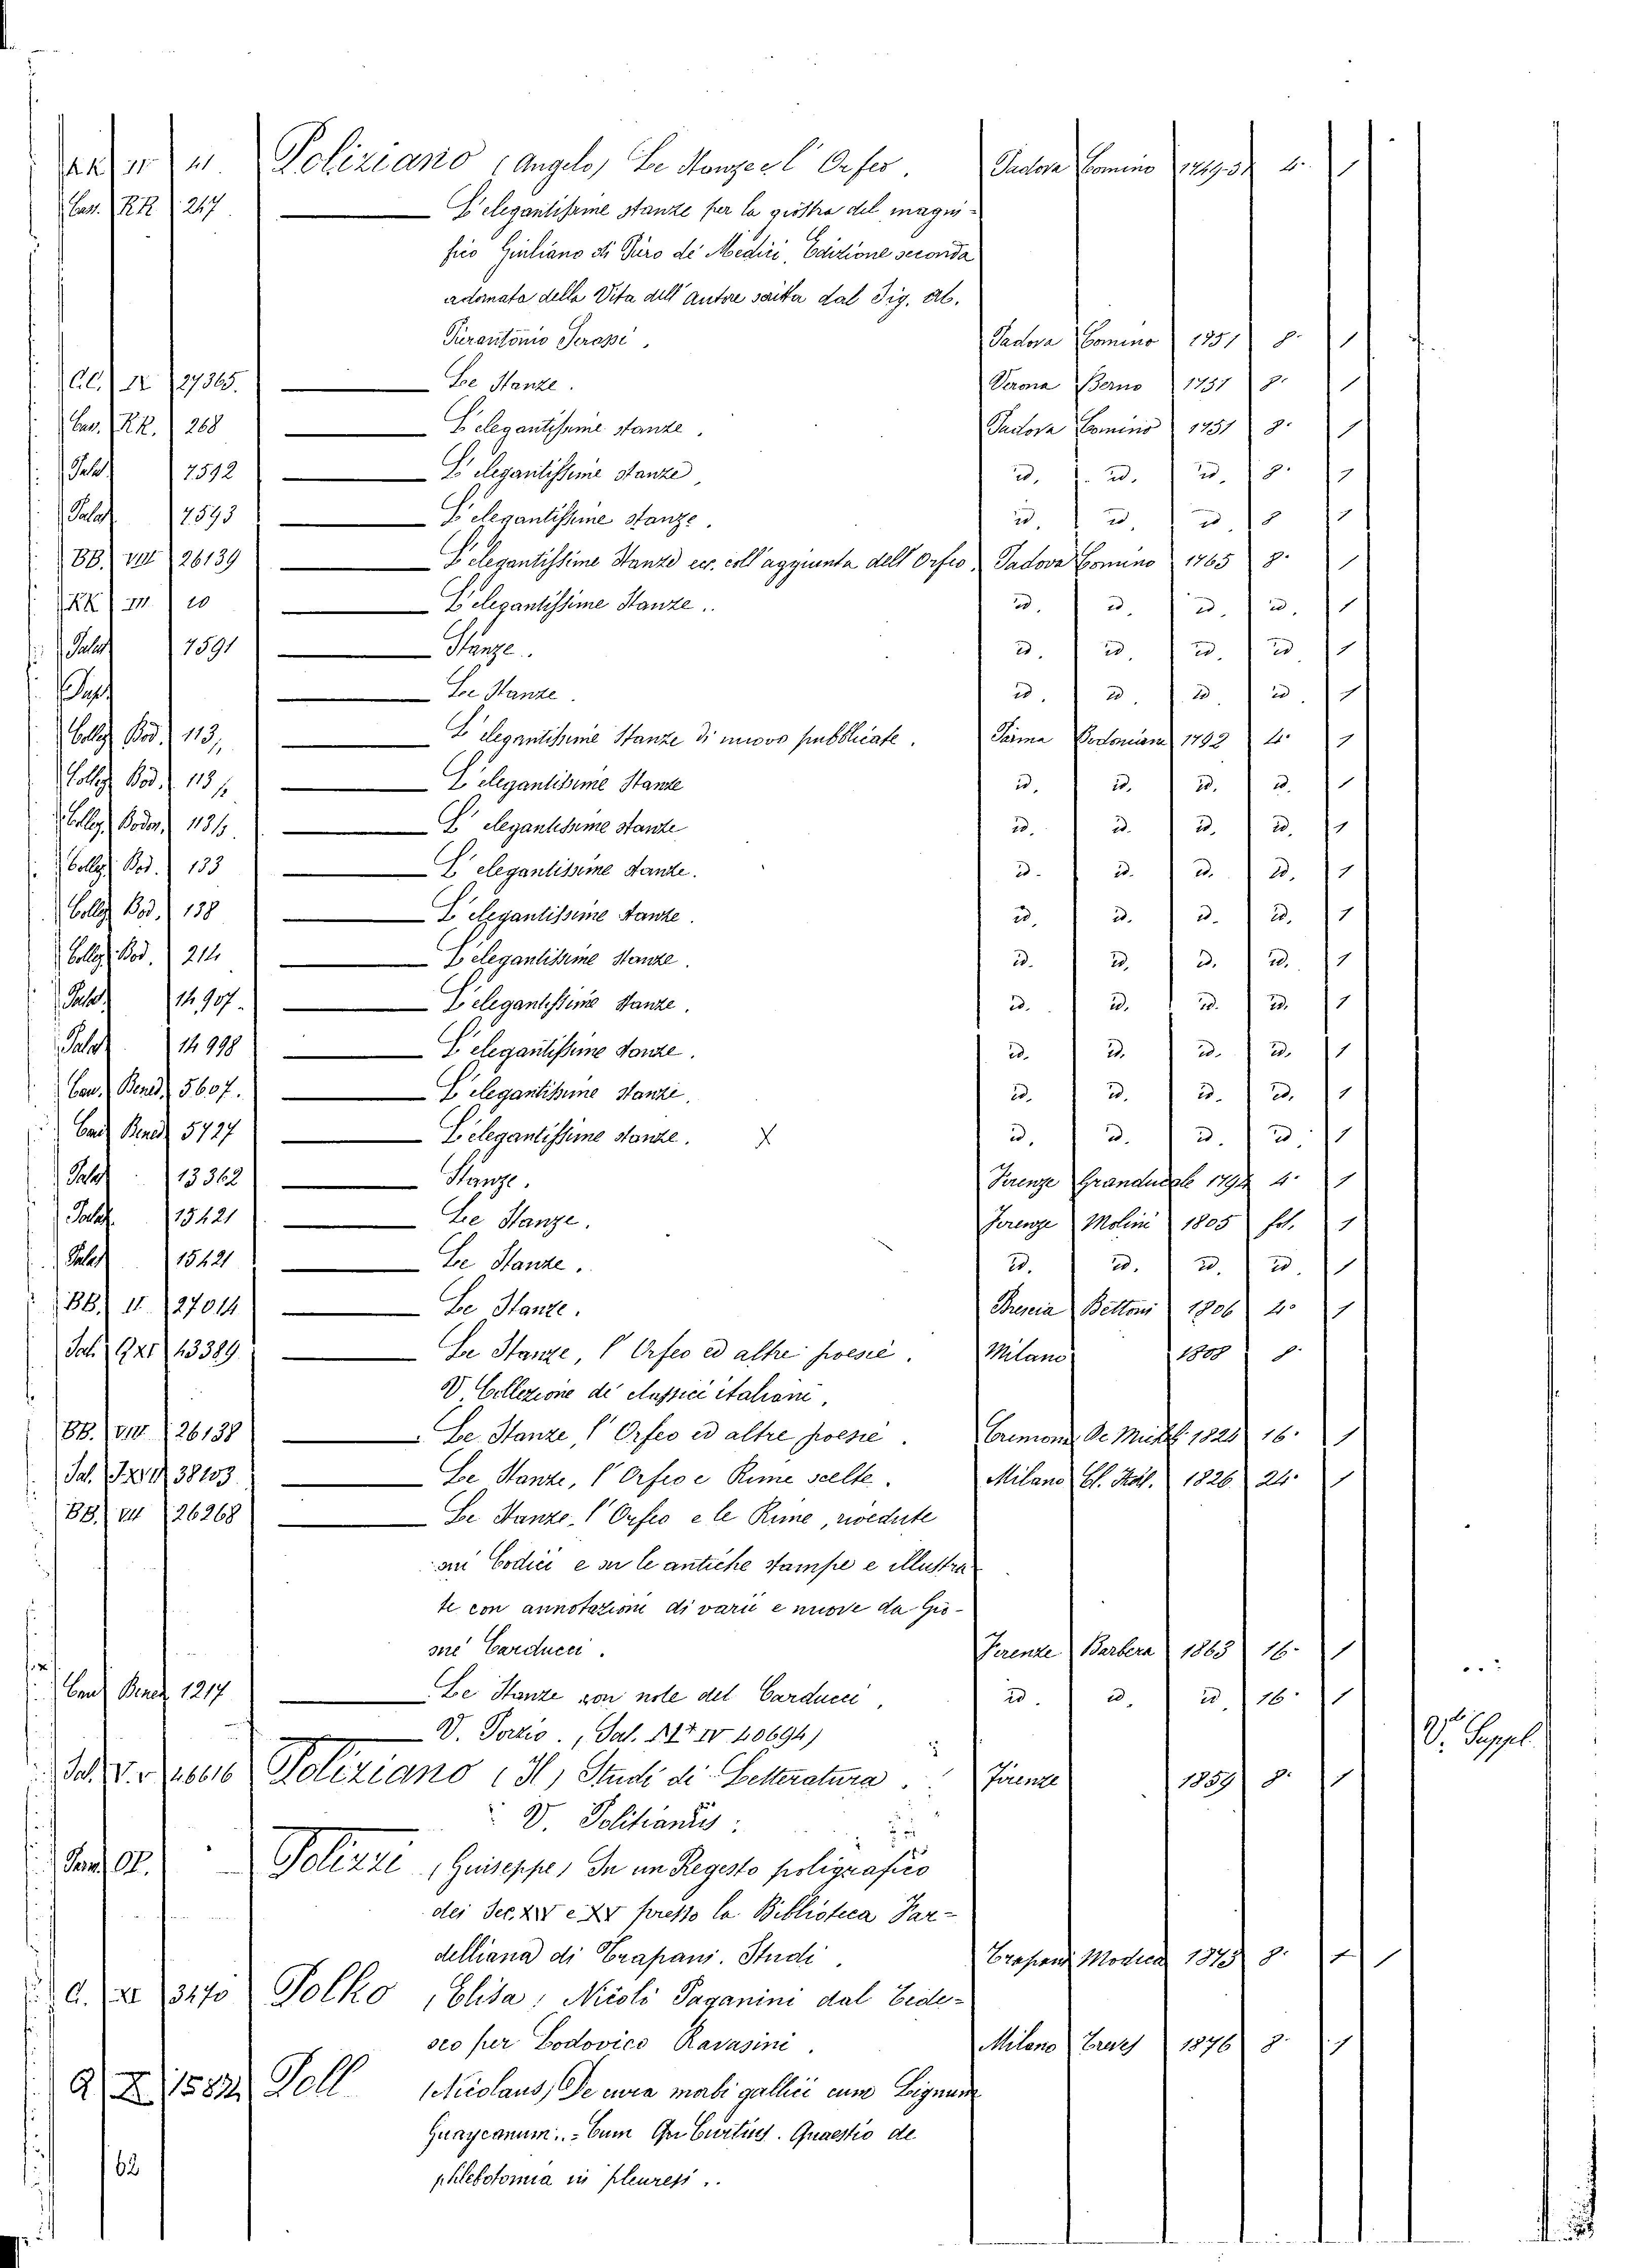 KK II 41 Poliziano (Angelo) Le Stanze e l'Orfeo. Padova Comino 1749.51 4. 1
Cas. RR 267 ——— L'elegantissime stanze per la giostra del magni-
fico Giuliano di Piero de Medici. Edizione seconda
adornata della Vita dell'autore scritta dal Sig. Ab.
Pierantonio Serassi. Padova Comino 1751 8. 1
27365. ——— Le Stanze. Verona Berno 1751 8. 1
Cas. RR. 268 ——— L'elegantissime stanze. Padova Comino 1751 8. 1
Palat 7592 ——— L'elegantissime stanze, id. id. id. 8. 1
Palat 7593 ——— L'elegantissime stanze. id. id. id. 8 1
BB. VIII 26139 ——— L'elegantissime Stanze ecc. coll'aggiunta dell'Orfeo. Padova Comino 1765 8. 1
KK III 20 ——— L'elegantissime Stanze. id. id. id. id. 1
Palat 7591 ——— Stanze. id. id. id. id 1
——— Le Stanze. id. id. id. id. 1
Collez Bod. 113, ——— L'elegantissime Stanze di nuovo pubblicate. Parma Bodoniana 1792 4. 1
Collez Bod. 113/2 ——— L'elegantissime Stanze id. id. id. id. 1
Collez. Bodon. 113/3 ——— L'elegantissime stanze id. id. id. id. 1
Collez Bod. 133 ——— L'elegantissime stanze. id. id. id. id. 1
Collez Bod. 138 ——— L'elegantissime stanze. id. id. id. id. 1
Collez. Bod. 214 ——— L'elegantissime stanze. id. id. id. id. 1
Palat. 14,907. ——— L'elegantissime stanze. id. id. id. id. 1
Palat 14 998 ——— L'elegantissime stanze. id. id. id. id. 1
Cav. Bened. 5607. ——— L'elegantissime stanze. id. id. id. id. 1
Cav. Bened. 5727 ——— L'elegantissime stanze. X id. id. id. id. 1
Palat 13362 ——— Stanze. Firenze Granducale 1794 4. 1
Palat. 15421 ——— Le Stanze. Firenze Molini 1805 fol. 1
Palat 15421 ——— Le Stanze. id. id. id. id. 1
BB. II 27014 ——— Le Stanze. Brescia Bettoni 1806 4. 1
Sal. 13389 ——— Le Stanze, l'Orfeo ed altre poesie. Milano 1808 8.
V. Collezione de' classici italiani.
BB. VIII 26138 ——— Le Stanze, l'Orfeo ed altre poesie. Cremona De Micheli 1821 16. 1
Sal. 38103 ——— Le Stanze, l'Orfeo e Rime scelte. Milano Cl. Ital. 1826 24. 1
BB. VII 26268 ——— Le Stanze, l'Orfeo e le Rime, rivedute
sui Codici e su le antiche stampe e illustra-
te con annotazioni di varii e nuove da Gio-
sue' Carducci. Firenze Barbera 1863 16. 1
Cav. Bened. 1217 ——— Le Stanze con note del Carducci. id. id. id. 16. 1
V. Porzio., (Sal. IV 40694)
V. Suppl.
Sal. V. Poliziano (Il) Studi di Letteratura. Firenze 1859 8. 1
V. Politianus.
Polizzi (Giuseppe) Di un Regesto poligrafico
dei Sec. XIV e XV presso la Biblioteca Far-
delliana di Trapani. Studi. Trapani Modica 1873 8. 1
C. XI 3470 Polko (Elisa) Nicolò Paganini dal tede-
sco per Lodovico Ravasini. Milano Treves 1876 8. 1
A. X 1582. Poll (Nicolaus) De cura mabi gallici cum Lignum
Guaycanum. - Cum Curtius. Quaestio de
phlebotomia in pleuresi..
62